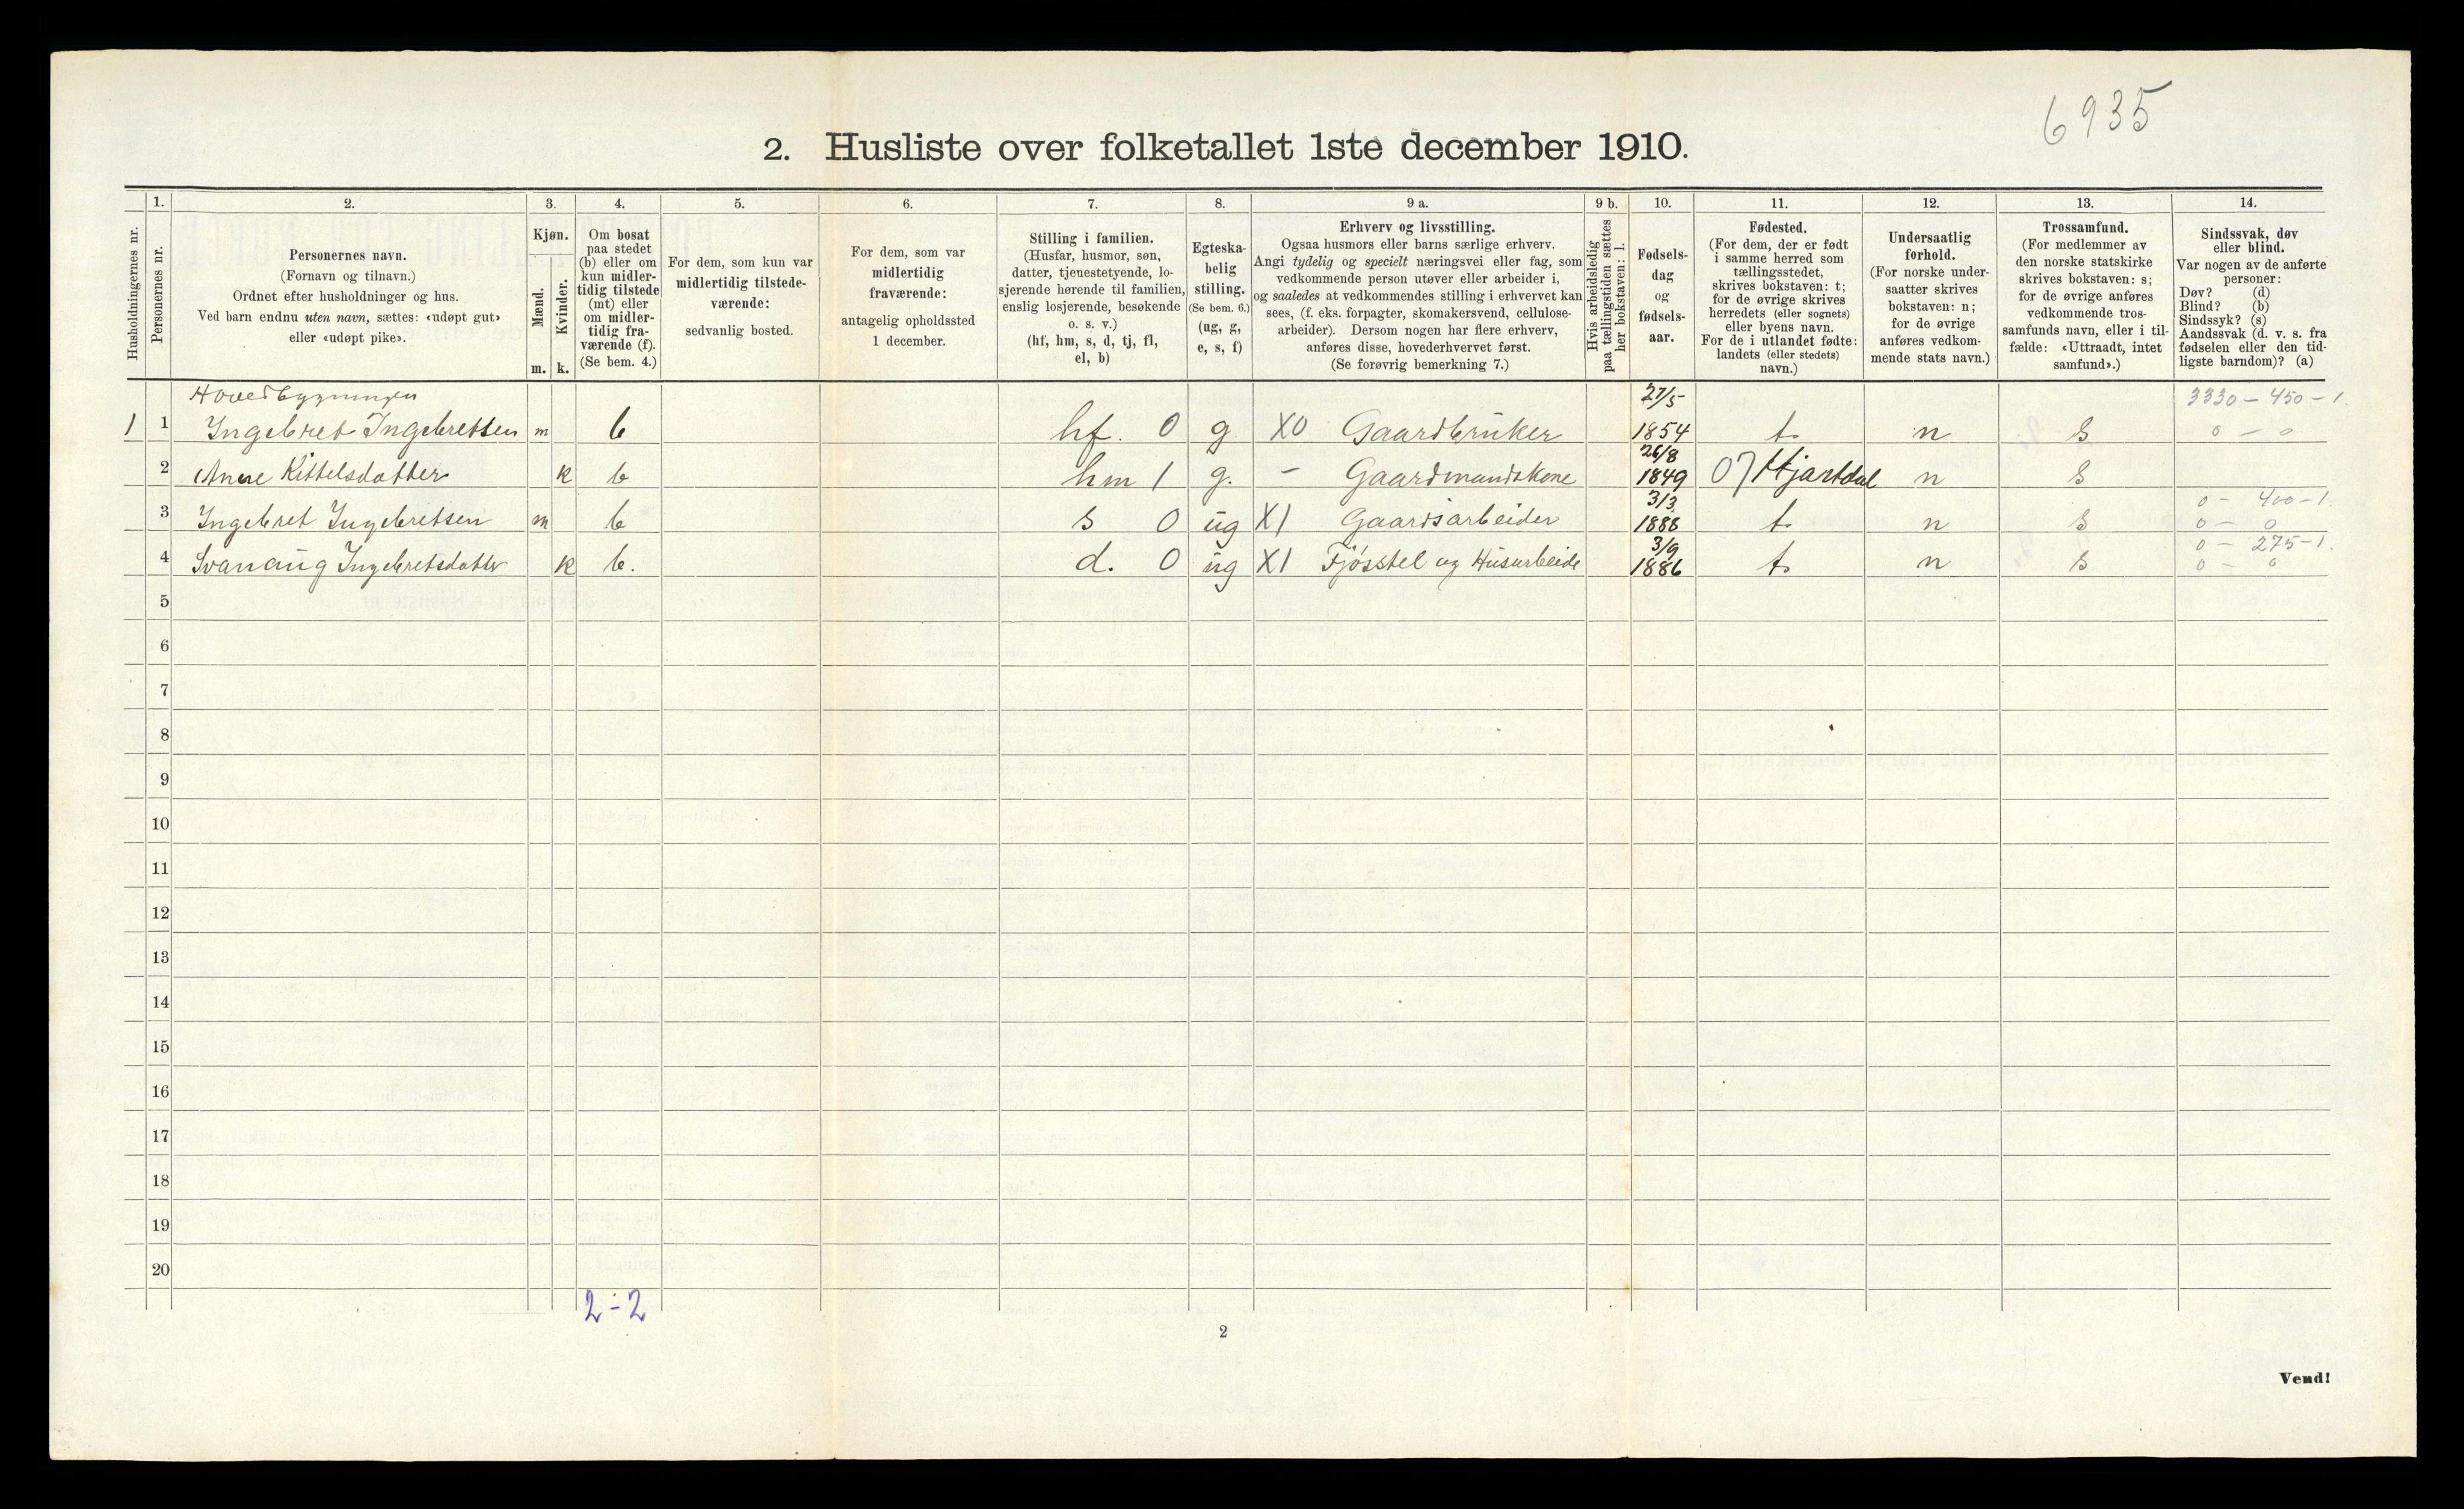 6935
2. Husliste over folketallet 1ste december 1910.
Husholdningernes nr.
1.
Personernes nr.
2.
Personernes navn.
(Fornavn og tilnavn.)
Ordnet efter husholdninger og hus.
Ved barn endnu uten navn, sættes: «udøpt gut»
eller «udøpt pike».
3.
Kjøn.
Mænd.
Kvinder.
m. k.
4.
Om bosat
paa stedet
(b) eller om
kun midler-
tidig tilstede
(mt) eller
om midler-
tidig fra-
værende (f).
(Se bem. 4.)
5.
For dem, som kun var
midlertidig tilstede-
værende:
sedvanlig bosted.
6.
For dem, som var
midlertidig
fraværende:
antagelig opholdssted
1 december.
7.
Stilling i familien.
(Husfar, husmor, søn,
datter, tjenestetyende, lo-
sjerende hørende til familien,
enslig losjerende, besøkende
o. s. v.)
(hf, hm, s, d, tj, fl,
el, b)
8.
Egteska-
belig
stilling.
(Se bem. 6.)
(ug, g,
e, s, f)
9 a.
Erhverv og livsstilling.
Ogsaa husmors eller barns særlige erhverv.
Angi tydelig og specielt næringsvei eller fag, som
vedkommende person utøver eller arbeider i,
og saaledes at vedkommendes stilling i erhvervet kan
sees, (f. eks. forpagter, skomakersvend, cellulose-
arbeider). Dersom nogen har flere erhverv,
anføres disse, hovederhvervet først.
(Se forøvrig bemerkning 7.)
9 b.
Hvis arbeidsledig
paa tællingstiden sættes
her bokstaven: l.
10.
Fødsels-
dag
og
fødsels-
aar.
11.
Fødested.
(For dem, der er født
i samme herred som
tællingsstedet,
skrives bokstaven: t;
for de øvrige skrives
herredets (eller sognets)
eller byens navn.
For de i utlandet fødte:
landets (eller stedets)
navn.)
12.
Undersaatlig
forhold.
(For norske under-
saatter skrives
bokstaven: n;
for de øvrige
anføres vedkom-
mende stats navn.)
13.
Trossamfund.
(For medlemmer av
den norske statskirke
skrives bokstaven: s;
for de øvrige anføres
vedkommende tros-
samfunds navn, eller i til-
fælde: «Uttraadt, intet
samfund».)
14.
Sindssvak, døv
eller blind.
Var nogen av de anførte
personer:
Døv? (d)
Blind? (b)
Sindssyk? (s)
Aandssvak (d. v. s. fra
fødselen eller den tid-
ligste barndom)? (a)
Hovedbygningen 27/5 3330 – 450 – 1.
1 1 Ingebret Ingebretsen m b hf. 0 g X0 Gaardbruker 1854 t. n s 0 – 0
26/8
2 Anne Kittelsdatter k b hm 1 g. – Gaardmandskone 1849 07 Hjartdal n s
3/3 0 – 400 – 1.
3 Ingebret Ingebretsen m b s 0 ug X1 Gaardsarbeider 1888 t. n s 0 – 0
3/9 0 – 275 – 1.
4 Svanaug Ingebretsdatter k b. d. 0 ug X1 Fjøsstel og Husarbeide 1886 t. n s 0 – 0
5
6
7
8
9
10
11
12
13
14
15
16
17
18
19
20
2 – 2
2
Vend!